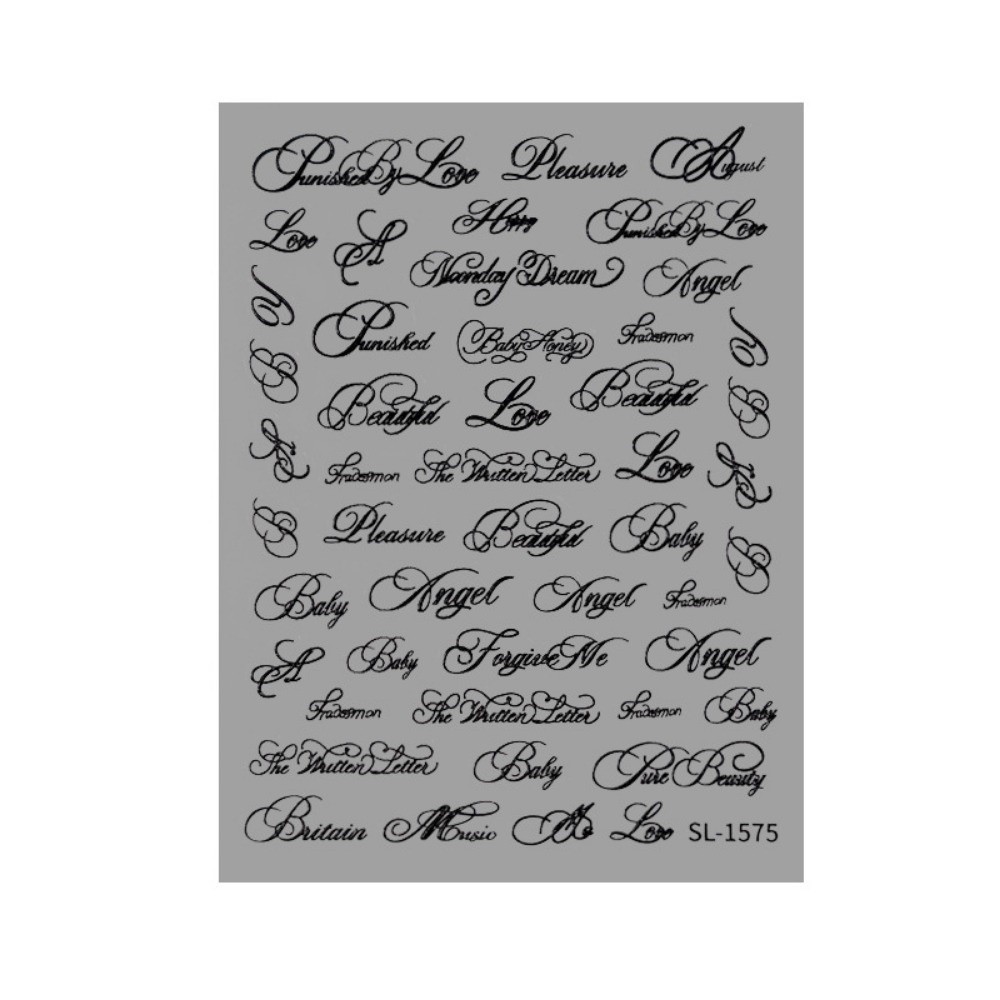 Punished By Love Pleasure August
Love Punished By Love
Noonday Dream Angel
Punished Baby Honey Tradesman
Beautiful Love Beautiful
Tradesman The Written Letter Love
Pleasure Beautiful Baby
Baby Angel Angel Tradesman
Baby Forgive Me Angel
Tradesman The Written Letter Tradesman Baby
The Written Letter Baby Pure Beauty
Britain Music Love SL-1575